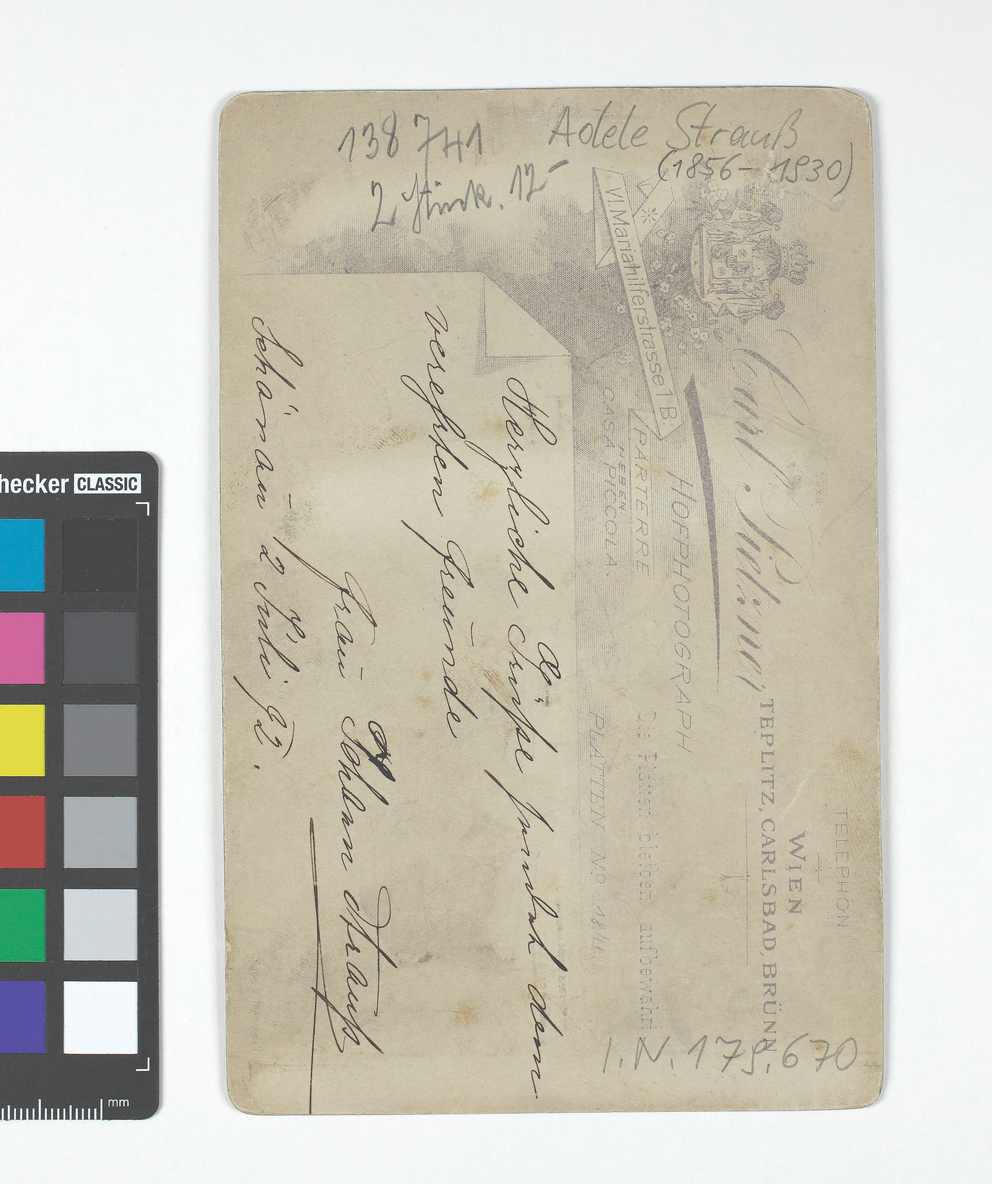 138741
2 Stück. 12-
Adele Strauß
(1856-1930)
VI. Mariahilferstrasse 1B
PARTERRE
NEBEN
CASA PICCOLA.
Carl Pietzner
HOFPHOTOGRAPH
TELEPHON
WIEN
TEPLITZ, CARLSBAD, BRÜNN
Die Platten bleiben aufbewahrt
PLATTEN No
Herzliche Grüße zurück dem
verehrten Freunde
Frau Johann Strauß
Schönau 2 Juli 92.
I.N. 179.670
hecker CLASSIC
mm